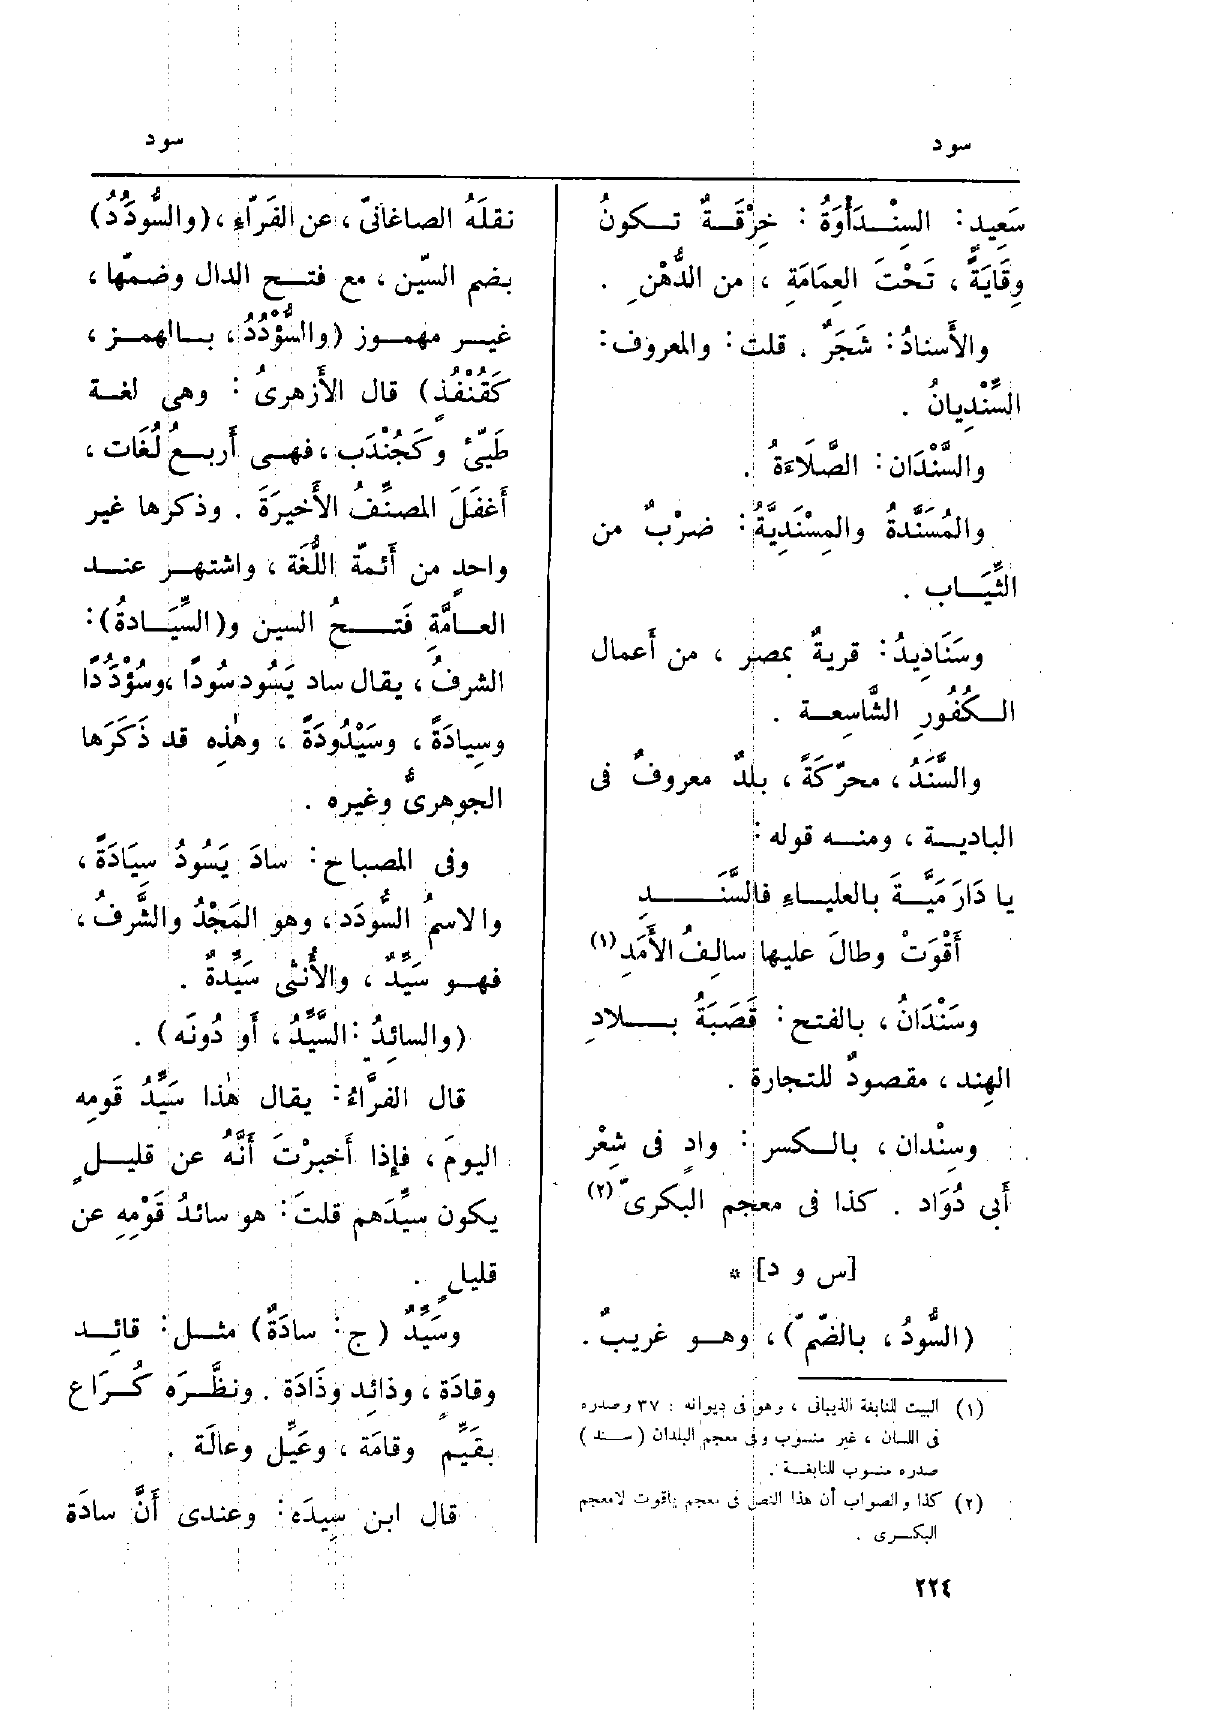 سود
سود
سَعِيد: السِنْدَأْوَةُ: خِرْقَةٌ تكونُ
وِقَايَةً، تَحْتَ العِمَامَةِ، من الدُّهْنِ.
والأَسنادُ: شَجَرٌ. قلت: والمعروف:
السِّنْدِيانُ.
والسَّنْدَان: الصَّلَاءَةُ.
والمُسَنَّدةُ والمِسْنَدِيَّةُ: ضرْبٌ من
الثِّيَاب.
وسَنَادِيدُ: قريةٌ بمصر، من أَعمال
الكُفُورِ الشَّاسِعة.
والسَّنَدُ، محرّكَةً، بلدٌ معروفٌ فى
البادية، ومنه قوله:
يا دَارَ مَيَّةَ بالعلياءِ فالسَّنَدِ
أَقْوَتْ وطالَ عليها سالِفُ الأَمَدِ (١)
وسَنْدَانُ، بالفتح: قَصَبَةُ بلادِ
الهِند، مقصودٌ للتجارة.
وسِنْدان، بالكسر: وادٍ فى شِعْر
أَبى دُوَاد. كذا فى معجم البكرىّ (٢)
[س و د] *
(السُّودُ، بالضّمّ)، وهو غريبٌ.
(١) البيت للنابغة الذبيانى، وهو فى ديوانه: ٣٧ وصدره
فى اللسان، غير منسوب وفى معجم البلدان (سند)
صدره منسوب للنابغة.
(٢) كذا والصواب أن هذا النص فى معجم ياقوت لامعجم
البكرى.
نقلَهُ الصاغانىّ، عن الفَرّاءِ، (والسُّودَُدُ)
بضم السّين، مع فتح الدال وضمّها،
غير مهموز (والسُّؤْدُدُ، بالهمز،
كَقُنْفُذٍ) قال الأَزهرىُ: وهى لغة
طَيّئ وكَجُنْدَب، فهى أَربعُ لُغَات،
أَغفَلَ المصنِّفُ الأَخيرَةَ. وذكرها غير
واحدٍ من أَئمّة اللُّغَة، واشتهر عند
العامَّةِ فَتحُ السين و(السِّيَادةُ):
الشرفُ، يقال ساد يَسُود سُودًا، وسُؤْدُدًا
وسِيادَةً، وسَيْدُودَةً، وهٰذِه قد ذَكَرَها
الجوهرىُّ وغيره.
وفى المصباح: سادَ يَسُودُ سِيَادَةً،
والاسمُ السُّودَد، وهو المَجْدُ والشَّرفُ،
فهو سَيِّدٌ، والأُنثى سَيِّدةٌ.
(والسائِدُ: السَّيِّدُ، أَو دُونَه).
قال الفرَّاءُ: يقال هٰذا سَيِّدُ قَومِه
اليومَ، فإِذا أَخبرْتَ أَنَّهُ عن قليلٍ
يكون سيِّدَهم قلتَ: هو سائدُ قَوْمِهِ عن
قليلٍ.
وسَيِّدٌ (ج: سادَةٌ) مثل: قائِد
وقادَةٍ، وذائِد وذَادَة. ونظَّرَه كُرَاع
بقَيِّم وقامَة، وعَيِّل وعالَة.
قال ابن سِيدَه: وعندى أَنَّ سادَة
٢٢٤